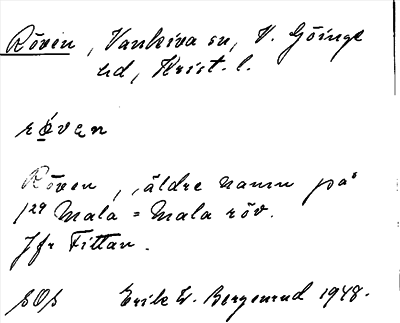 Röven, Vankiva sn, V. Göinge
hd, Krist. l.
röven
Röven, äldre namn på
1²⁹ Mala = Mala röv.
Jfr Fittan.
sOs Erik W. Bergenrud 1948.